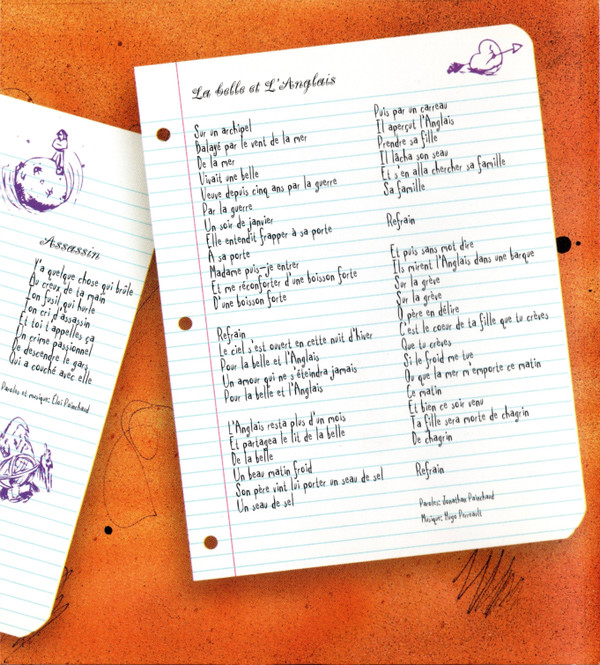 Assassin
Y'a quelque chose qui brûle
Au creux de ta main
Ton fusil qui hurle
Ton cri d'assassin
Et toi t'appelles ça
Un crime passionnel
De descendre le gars
Qui a couché avec elle
Paroles et musique: Éloi Painchaud
La belle et L'Anglais
Sur un archipel
Balayé par le vent de la mer
De la mer
Vivait une belle
Veuve depuis cinq ans par la guerre
Par la guerre
Un soir de janvier
Elle entendit frapper à sa porte
À sa porte
Madame puis-je entrer
Et me réconforter d'une boisson forte
D'une boisson forte
Refrain
Le ciel s'est ouvert en cette nuit d'hiver
Pour la belle et l'Anglais
Un amour qui ne s'éteindra jamais
Pour la belle et l'Anglais
L'Anglais resta plus d'un mois
Et partagea le lit de la belle
De la belle
Un beau matin froid
Son père vint lui porter un seau de sel
Un seau de sel
Puis par un carreau
Il aperçut l'Anglais
Prendre sa fille
Il lâcha son seau
Et s'en alla chercher sa famille
Sa famille
Refrain
Et puis sans mot dire
Ils mirent l'Anglais dans une barque
Sur la grève
Sur la grève
Ô père en délire
C'est le coeur de ta fille que tu crèves
Que tu crèves
Si le froid me tue
Ou que la mer m'emporte ce matin
Ce matin
Et bien ce soir venu
Ta fille sera morte de chagrin
De chagrin
Refrain
Paroles: Jonathan Painchaud
Musique: Hugo Perreault